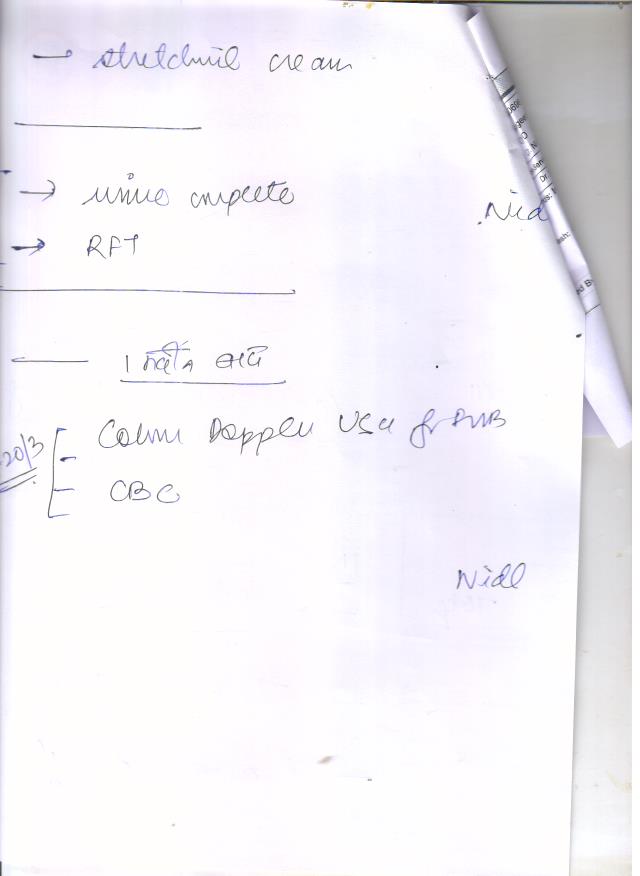 → stretchnil cream
→ urine complete
Nid
→ RFT
1 महीने बाद
20/3
- Colour Doppler USG for FWB
- CBC
Nidh